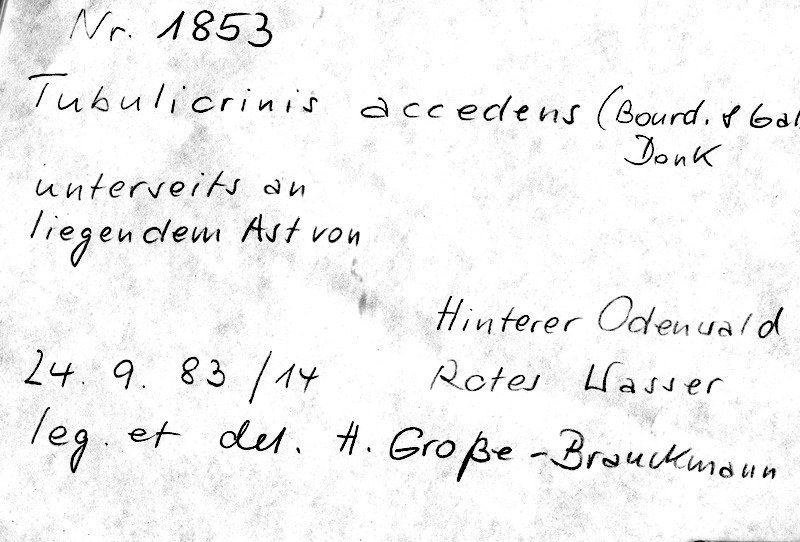 Nr. 1853
Tubulicrinis accedens (Bourd. & Gal
Donk
unterseits an
liegendem Ast von
Hinterer Odenwald
24. 9. 83 /14 Rotes Wasser
leg. et det. H. Große-Brauckmann